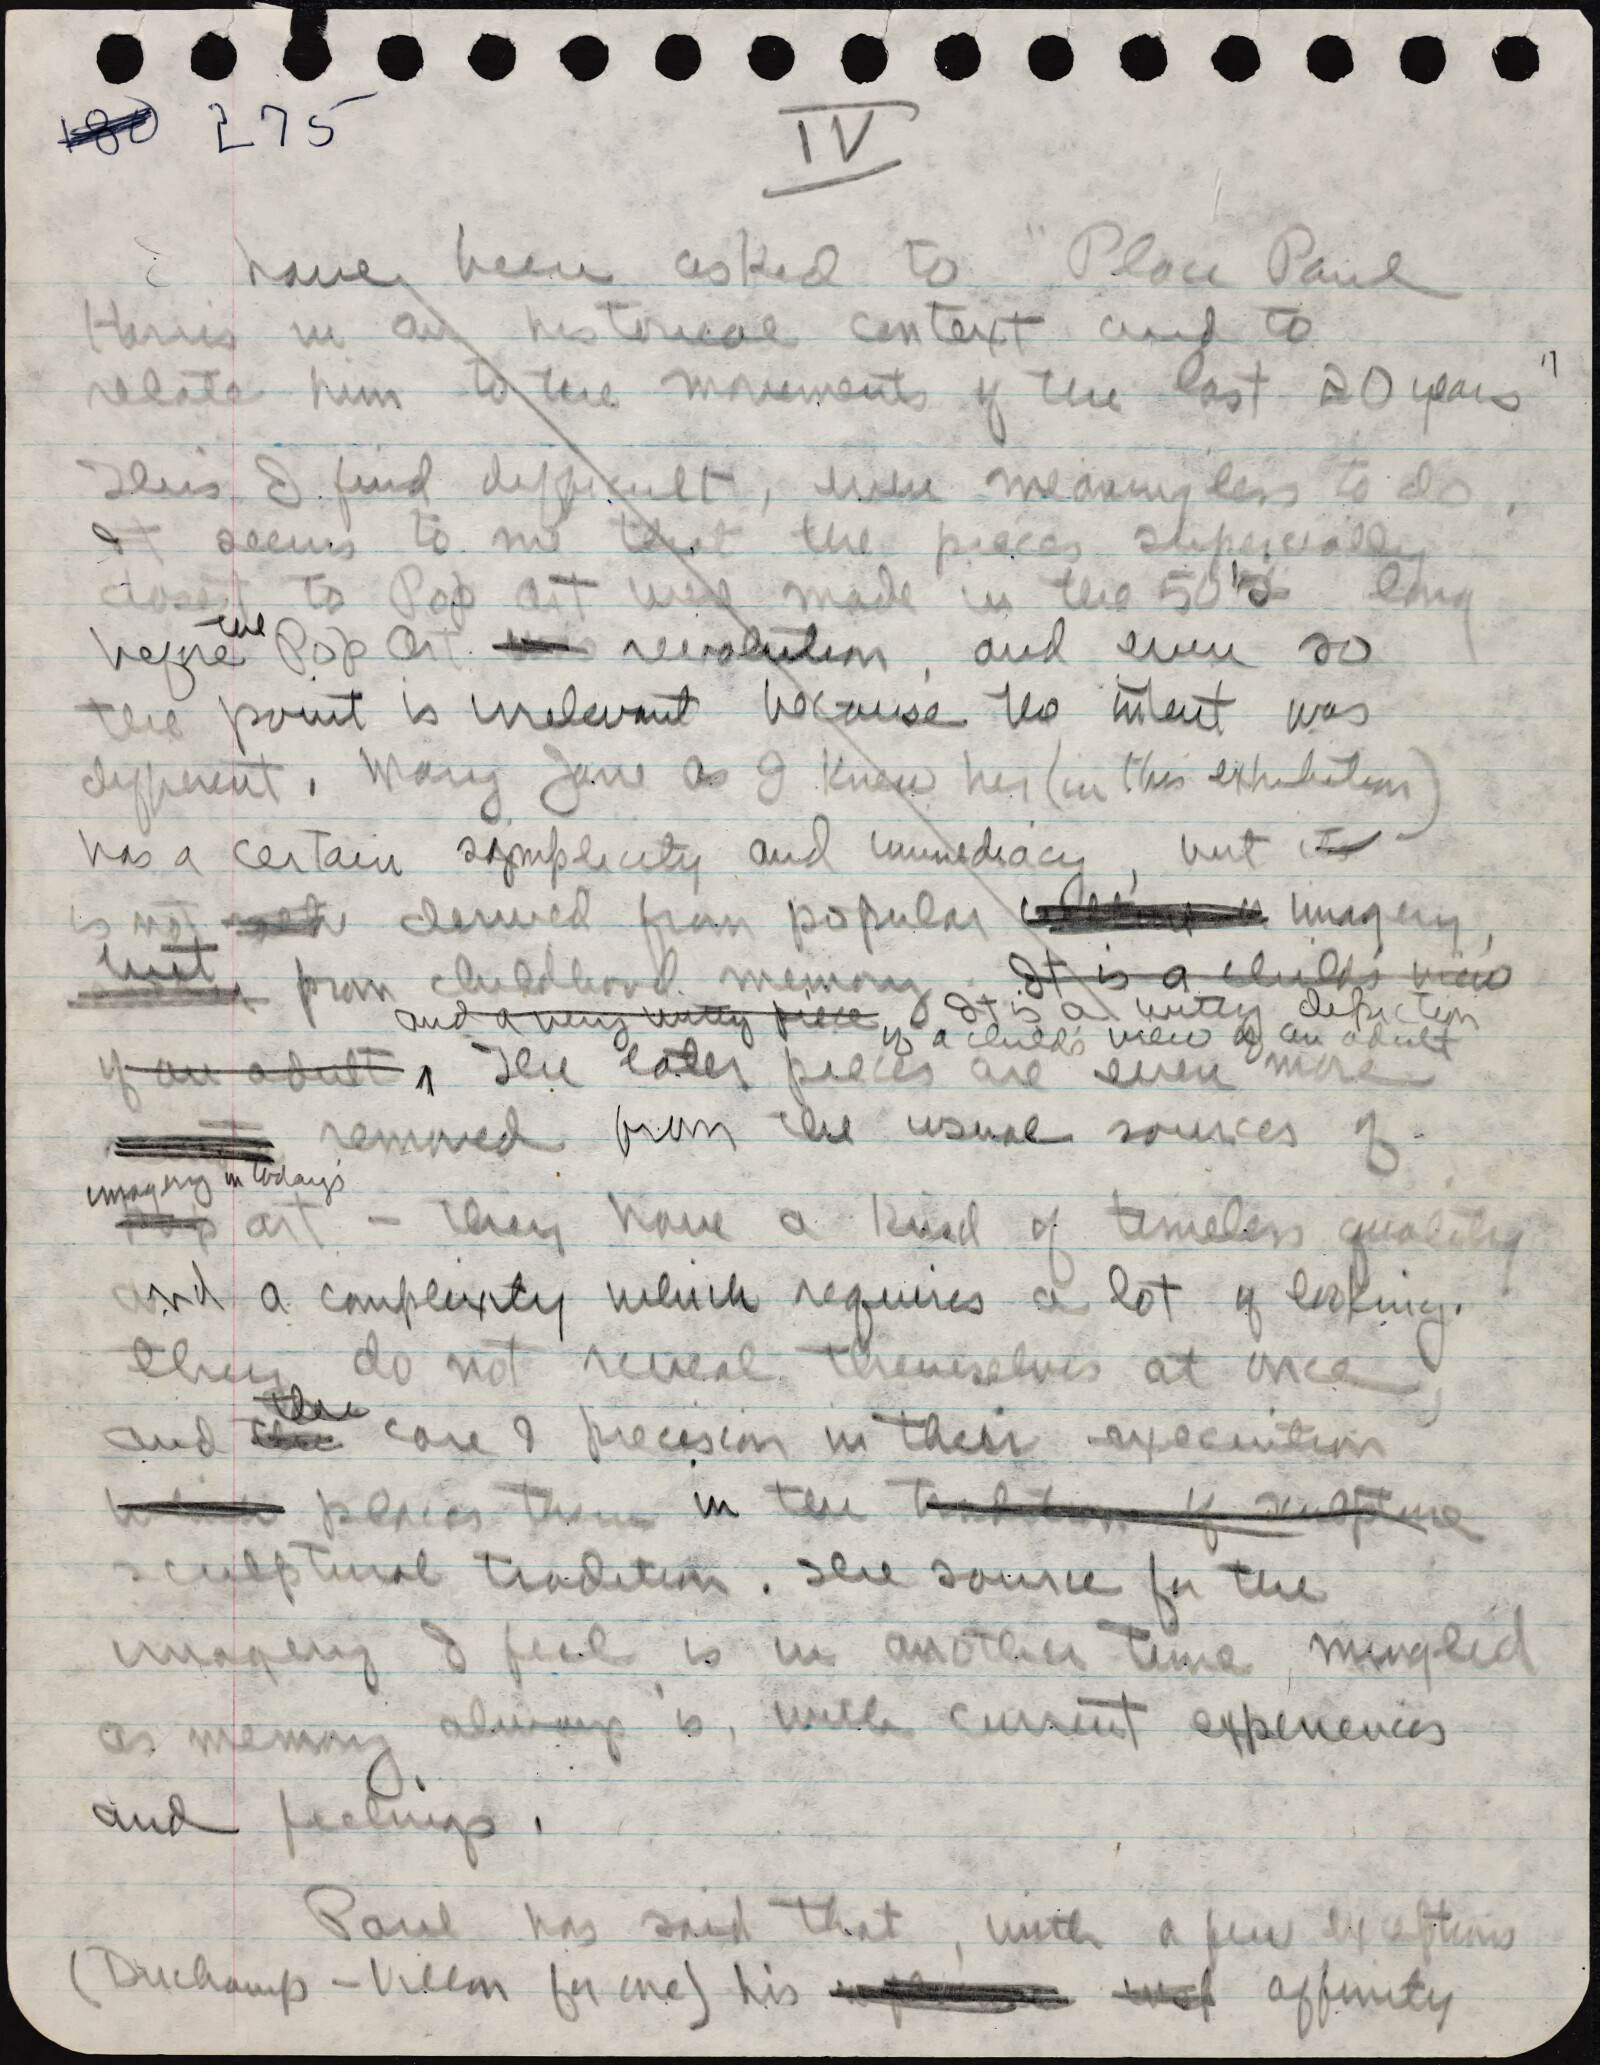 180 275
IV
I have been asked to "Place Paul
Harris in an historical context and to
relate him to the movements of the last 20 years"
This I find difficult, even meaningless to do.
It seems to me that the pieces superficially
closest to Pop art were made in the 50's long
before the Pop Art revolution, and even so
the point is irrelevant because the intent was
different. Mary Jane as I knew her (in this exhibition)
has a certain simplicity and immediacy, but it
is not derived from popular imagery,
but from childhood memory. It is a child's view
and a very witty piece It is a witty depiction
of a child's view of an adult
of an adult. The later pieces are even more
removed from the usual sources of
imagery in today's
Pop art - they have a kind of timeless quality
and a complexity which requires a lot of looking.
they do not reveal themselves at once,
and the care & precision in their execution
which places them in the tradition of sculpture
sculptural tradition. The source for the
imagery I feel, is in another time, mingled
as memory always is, with current experiences
and feelings.
Paul has said that, with a few exceptions
(Duchamp-Villon for one) his affinity